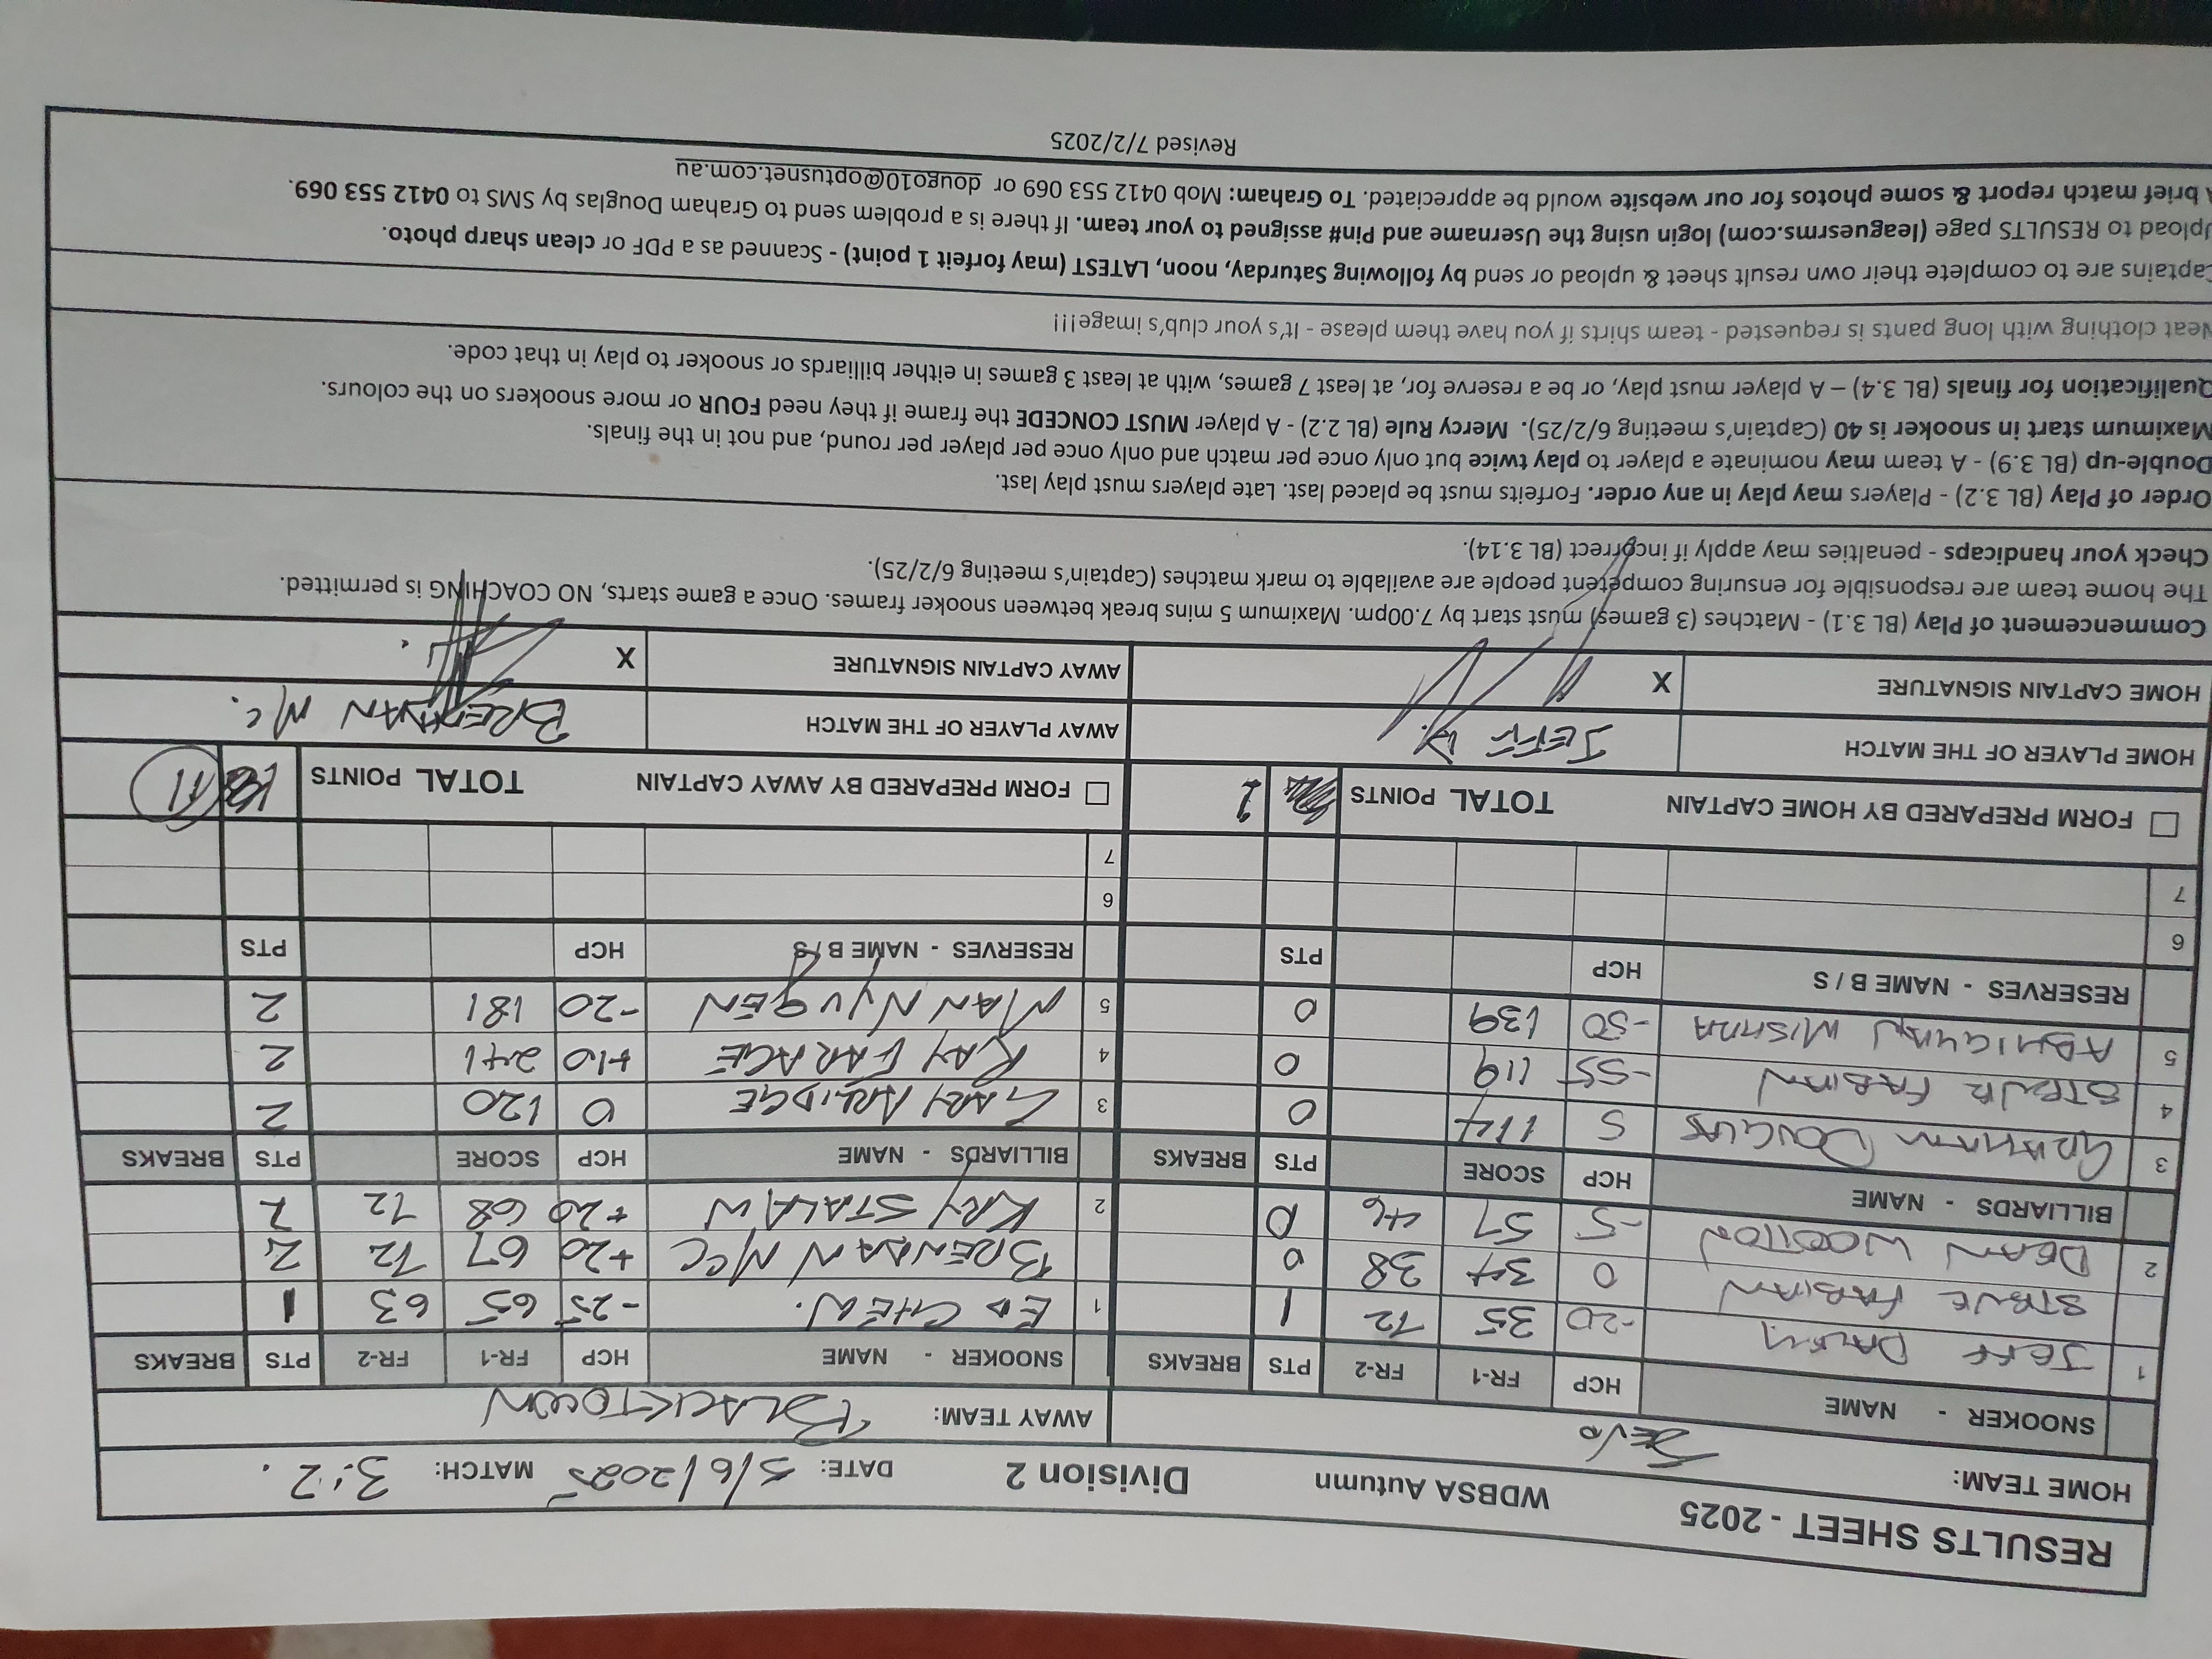 RESULTS SHEET - 2025 WDBSA Autumn Division 2 DATE: 5/6/2025 MATCH: 3:2.
HOME TEAM: AWAY TEAM: BLACKTOWN
SNOOKER - NAME HCP FR-1 FR-2 PTS BREAKS SNOOKER - NAME HCP FR-1 FR-2 PTS BREAKS
1 JEFF -20 35 72 1 1 ED CHEW. -25 65 63 1
STEVE FABIAN 0 34 38 0 BRENDAN McC +20 67 72 2
2 DEAN WOOTTON -5 57 46 0 2 KRYSTAL AW +20 68 72 2
BILLIARDS - NAME HCP SCORE PTS BREAKS BILLIARDS - NAME HCP SCORE PTS BREAKS
3 GRAHAM DOUGLAS 5 114 0 3 GARY ARLIDGE 0 120 2
4 STEVE FABIAN -55 119 0 4 RAY FARAGE +10 241 2
5 MISHRA -50 139 0 5 -20 181 2
RESERVES - NAME B / S HCP PTS RESERVES - NAME B / S HCP PTS
6 6
7 7
FORM PREPARED BY HOME CAPTAIN TOTAL POINTS 1 FORM PREPARED BY AWAY CAPTAIN TOTAL POINTS 11
HOME PLAYER OF THE MATCH JEFF D. AWAY PLAYER OF THE MATCH BRENDAN Mc.
HOME CAPTAIN SIGNATURE X AWAY CAPTAIN SIGNATURE X
Commencement of Play (BL 3.1) - Matches (3 games) must start by 7.00pm. Maximum 5 mins break between snooker frames. Once a game starts, NO COACHING is permitted.
The home team are responsible for ensuring competent people are available to mark matches (Captain's meeting 6/2/25).
Check your handicaps - penalties may apply if incorrect (BL 3.14).
Order of Play (BL 3.2) - Players may play in any order. Forfeits must be placed last. Late players must play last.
Double-up (BL 3.9) - A team may nominate a player to play twice but only once per match and only once per player per round, and not in the finals.
Maximum start in snooker is 40 (Captain's meeting 6/2/25). Mercy Rule (BL 2.2) - A player MUST CONCEDE the frame if they need FOUR or more snookers on the colours.
Qualification for finals (BL 3.4) – A player must play, or be a reserve for, at least 7 games, with at least 3 games in either billiards or snooker to play in that code.
Neat clothing with long pants is requested - team shirts if you have them please - It's your club's image!!!
Captains are to complete their own result sheet & upload or send by following Saturday, noon, LATEST (may forfeit 1 point) - Scanned as a PDF or clean sharp photo.
Upload to RESULTS page (leaguesrms.com) login using the Username and Pin# assigned to your team. If there is a problem send to Graham Douglas by SMS to 0412 553 069.
A brief match report & some photos for our website would be appreciated. To Graham: Mob 0412 553 069 or dougo10@optusnet.com.au
Revised 7/2/2025